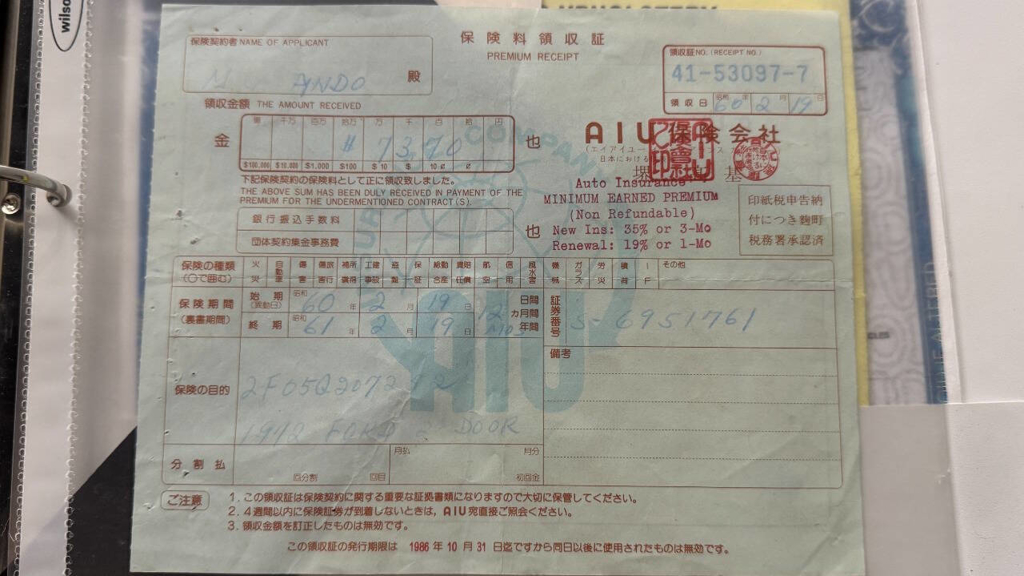 wilso
保険料領収証
PREMIUM RECEIPT
保険契約者 NAME OF APPLICANT
ANDO 殿
領収証NO. (RECEIPT NO.)
41-53097-7
領収日 昭和 60 年 2 月 19 日
領収金額 THE AMOUNT RECEIVED
金 千万 百万 十万 万 千 百 拾 円 也
¥ 7370
$100,000 $10,000 $1,000 $100 $10 $ 10¢ ¢
AIU保険会社
下記保険契約の保険料として正に領収致しました。
THE ABOVE SUM HAS BEEN DULY RECEIVED IN PAYMENT OF THE
PREMIUM FOR THE UNDERMENTIONED CONTRACT(S).
Auto Insurance
MINIMUM EARNED PREMIUM
(Non Refundable)
New Ins: 35% or 3-Mo
Renewal: 19% or 1-Mo
印紙税申告納
付につき麹町
税務署承認済
銀行振込手数料
団体契約集金事務費 也
COMPANY
保険の種類
(○で囲む)
その他
保険期間
(裏書期間)
始期 昭和 60 年 2 月 19 日 日間
12 カ月間
終期 昭和 61 年 2 月 19 日 年間
証券番号 S-6951761
備考
AIU
保険の目的 2F05Q207212
1972 FORD 2 DOOR
分割払 回分割 回目 月払 月分 初回金
ご注意
1. この領収証は保険契約に関する重要な証拠書類になりますので大切に保管してください。
2. 4週間以内に保険証券が到着しないときは、AIU宛直接ご照会ください。
3. 領収金額を訂正したものは無効です。
この領収証の発行期限は 1986 年 10 月 31 日迄ですから同日以後に使用されたものは無効です。